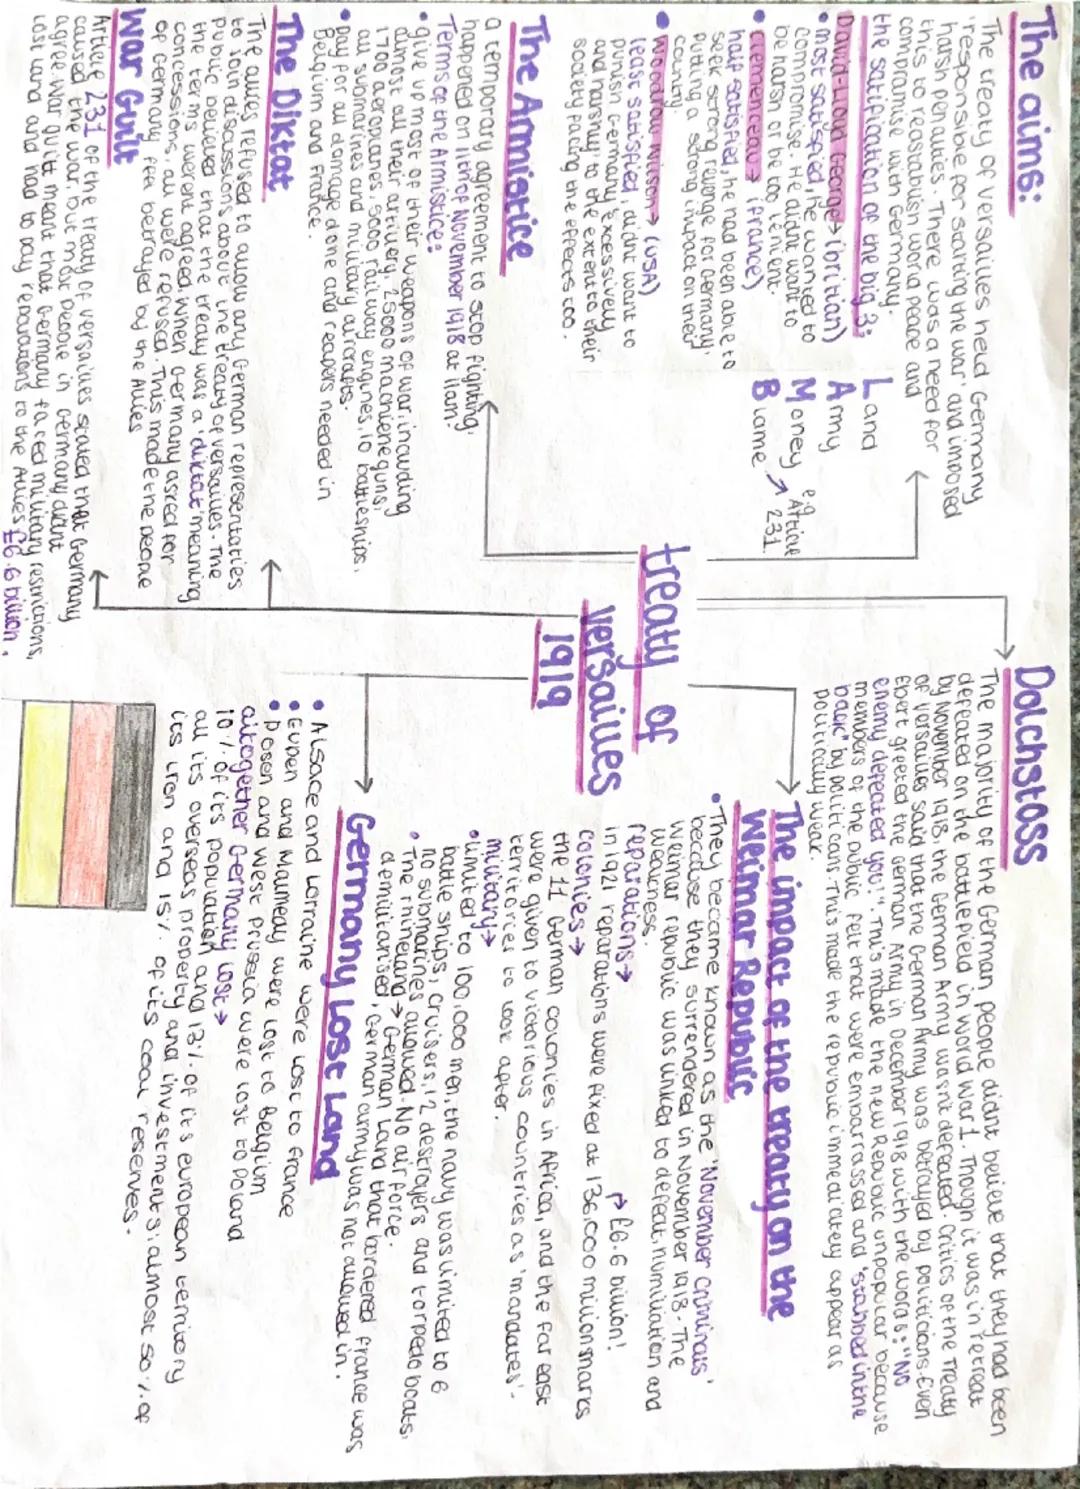 treaty of
versailles
1919
The aims:
The treaty of versailles held Germany
'responsible for starting the war' and imposed
harsh penalties. There was a need for
this to reastablish world peace and
compromise with Germany.
the satification of the big 3:
David-Lloyd George→ (british)
• most satisfied, he wanted to
compromise. He didnt want to
be harsh or be too lenient.
• Clemenceau→ (france)
half satisfied, he had been able to
seek strong revenge for Germany,
putting a strong impact on their
country.
• Woodrow wilson→ (USA)
least satisfied, didnt want to
punish Germany 'excessively
and harshly' to the extent to their
society facing the effects too.
Land
Army
Money
Blame
e.g Article
231.
The Armistice
a temporary agreement to stop fighting,
happened on 11th of November 1918 at 11am.
Terms of the Armistice:
• give up most of their weapons of war, including
almost all their artillery, 2500 machine guns,
1700 aeroplanes, 5000 railway engines, 10 battleships,
all submarines and military aircrafts.
• pay for all damage done and repaers needed in
Belgium and France.
The Diktat
The allies refused to allow any German representaties
to join discussions about the treaty of versailles. The
public believed that the treaty was a 'diktat' meaning
the terms werent agreed. When Germany asked for
concessions, all were refused. This made the people
of Germany feel betrayed by the Allies
War Guilt
Article 231 of the treaty of versailles stated that Germany
caused the war, but most people in Germany didnt
agree. War guilt meant that Germany faced military restrictions,
lost land and had to pay reparations to the Allies £6.6 billion.
Dolchstoss
The majority of the German people didnt believe that they had been
defeated on the battlefield in world war 1. Though it was in retreat
by November 1918, the German Army wasn't defeated. Critics of the Treaty
of versailles said that the German Army was betrayed by politicians. Even
Ebert greeted the German Army in December 1918 with the words: "NO
enemy defeated you!" This made the new Republic unpopular because
members of the public felt that were embarrassed and 'stabbed in the
back' by politicans. This made the republic immediatey appear as
politically weak.
The impact of the treaty on the
Weimar Republic
• They became known as the 'November Criminals'
because they surrendered in November 1918. The
Weimar republic was linked to defeat, humiliation and
weakness.
reparations→ → £6.6 billion!
in 1921 reparations were fixed at 136,000 million marks
colonies →
the 11 German colonies in Africa, and the far east
were given to victorious countries as 'mandates'-
territories to look after.
military→
• limited to 100,000 men, the navy was limited to 6
battle ships, 6 cruisers, 12 destroyers and torpedo boats,
no submarines allowed. No air force.
• The rhineland → German land that bordered france was
demilitarised, German army was not allowed in.
Germany Lost Land
• Alsace and Lorraine were lost to france
• Eupen and Malmedy were lost to Belgium
• posen and west prussia were lost to Poland
altogether Germany lost→
10% of its population and 13% of its european territory
all its overseas property and investments, almost 50% of
its iron and 15% of its coal reserves.